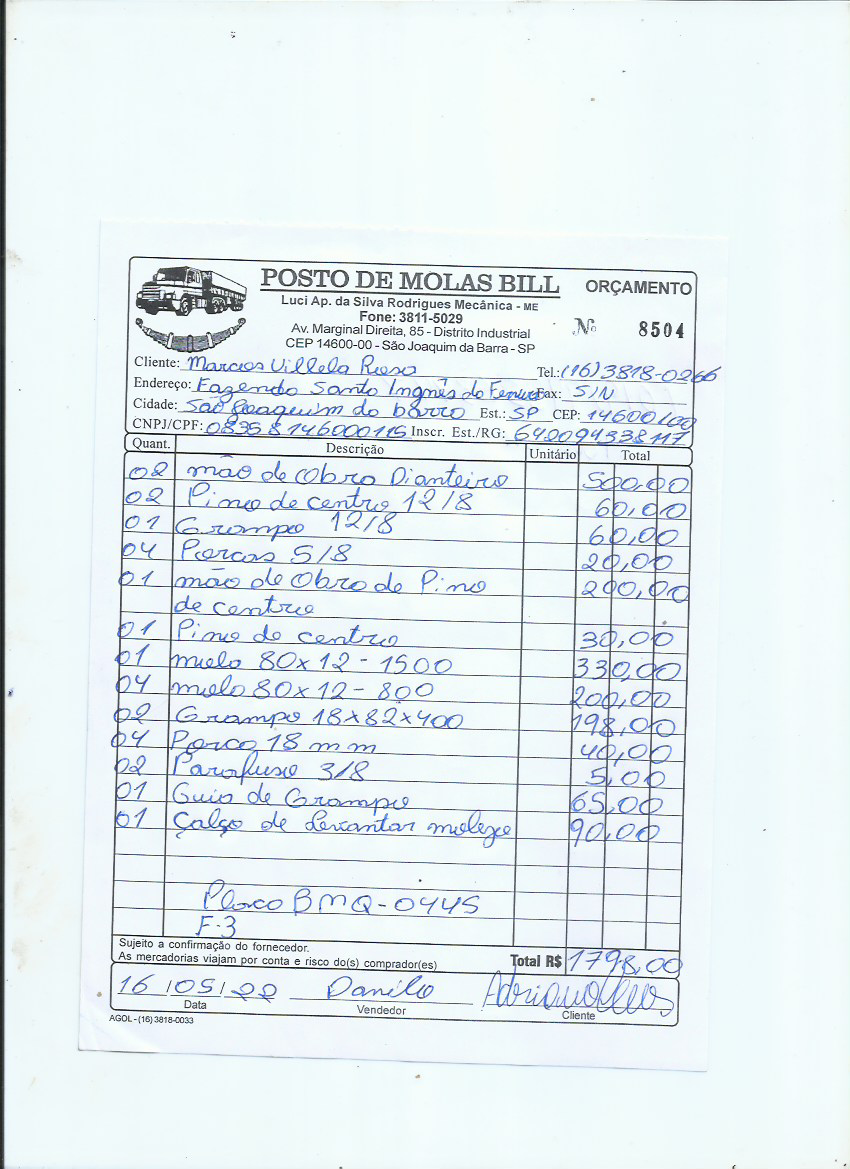 POSTO DE MOLAS BILL
ORÇAMENTO
Luci Ap. da Silva Rodrigues Mecânica - ME
Fone: 3811-5029
Av. Marginal Direita, 85 - Distrito Industrial
CEP 14600-00 - São Joaquim da Barra - SP
Nº 8504
Cliente: Marcos Villela Rosa Tel.: (16) 3818-0266
Endereço: Fazenda Santo Ingnês do Fax: S/N
Cidade: São Joaquim da barra Est.: SP CEP: 14600 100
CNPJ/CPF: 08358146000115 Inscr. Est./RG: 640094338117
Quant. Descrição Unitário Total
02 mão de Obra Dianteiro 500,00
02 Pino de centro 12/8 60,00
01 Grampo 12/8 60,00
04 Porcas 5/8 20,00
01 mão de Obra de Pino 200,00
de centro
01 Pino de centro 30,00
01 mola 80x12-1500 330,00
04 mola 80x12-800 200,00
02 Grampo 18x82x400 198,00
04 Porca 18 mm 40,00
02 Parafuso 3/8 5,00
01 Guia de Grampo 65,00
01 Calço de Levantar moleje 90,00
Placa BMQ-0445
F-3
Sujeito a confirmação do fornecedor.
As mercadorias viajam por conta e risco do(s) comprador(es)
Total R$ 1798,00
16/05/22 Danilo Adriano
Data Vendedor Cliente
AGOL - (16) 3818-0033